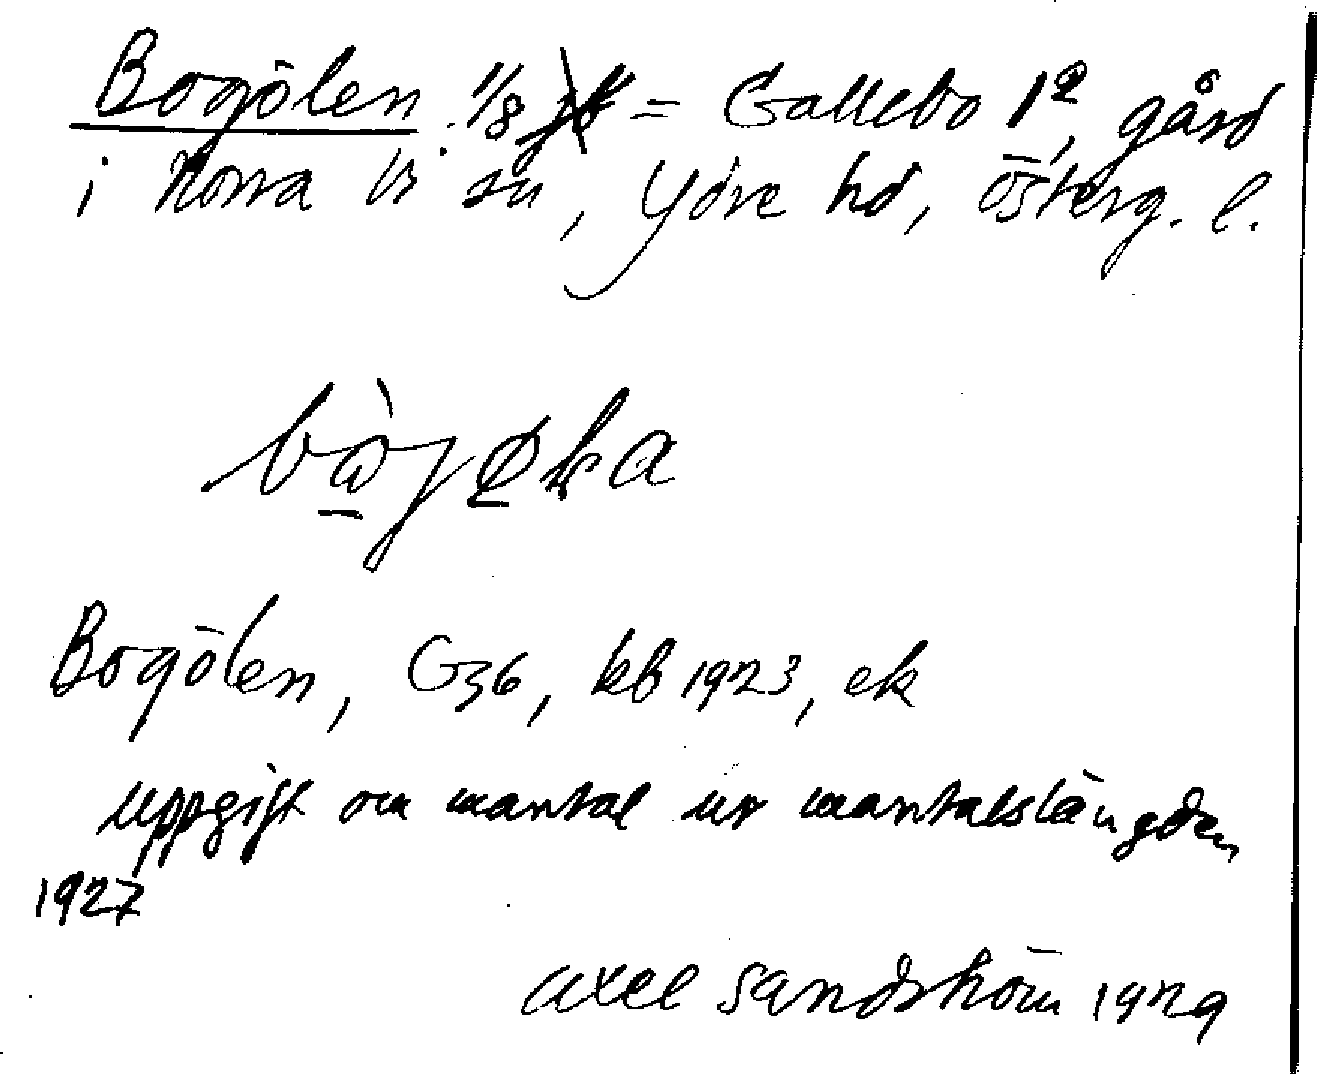 Bogölen 1/8 = Gallebo 1², gård
i Norra Vi sn, Ydre hd, Österg. l.
Bogölen, G36, kb 1923, ek
Uppgift om mantal ur mantalslängden
1927
Axel Sandström 1929